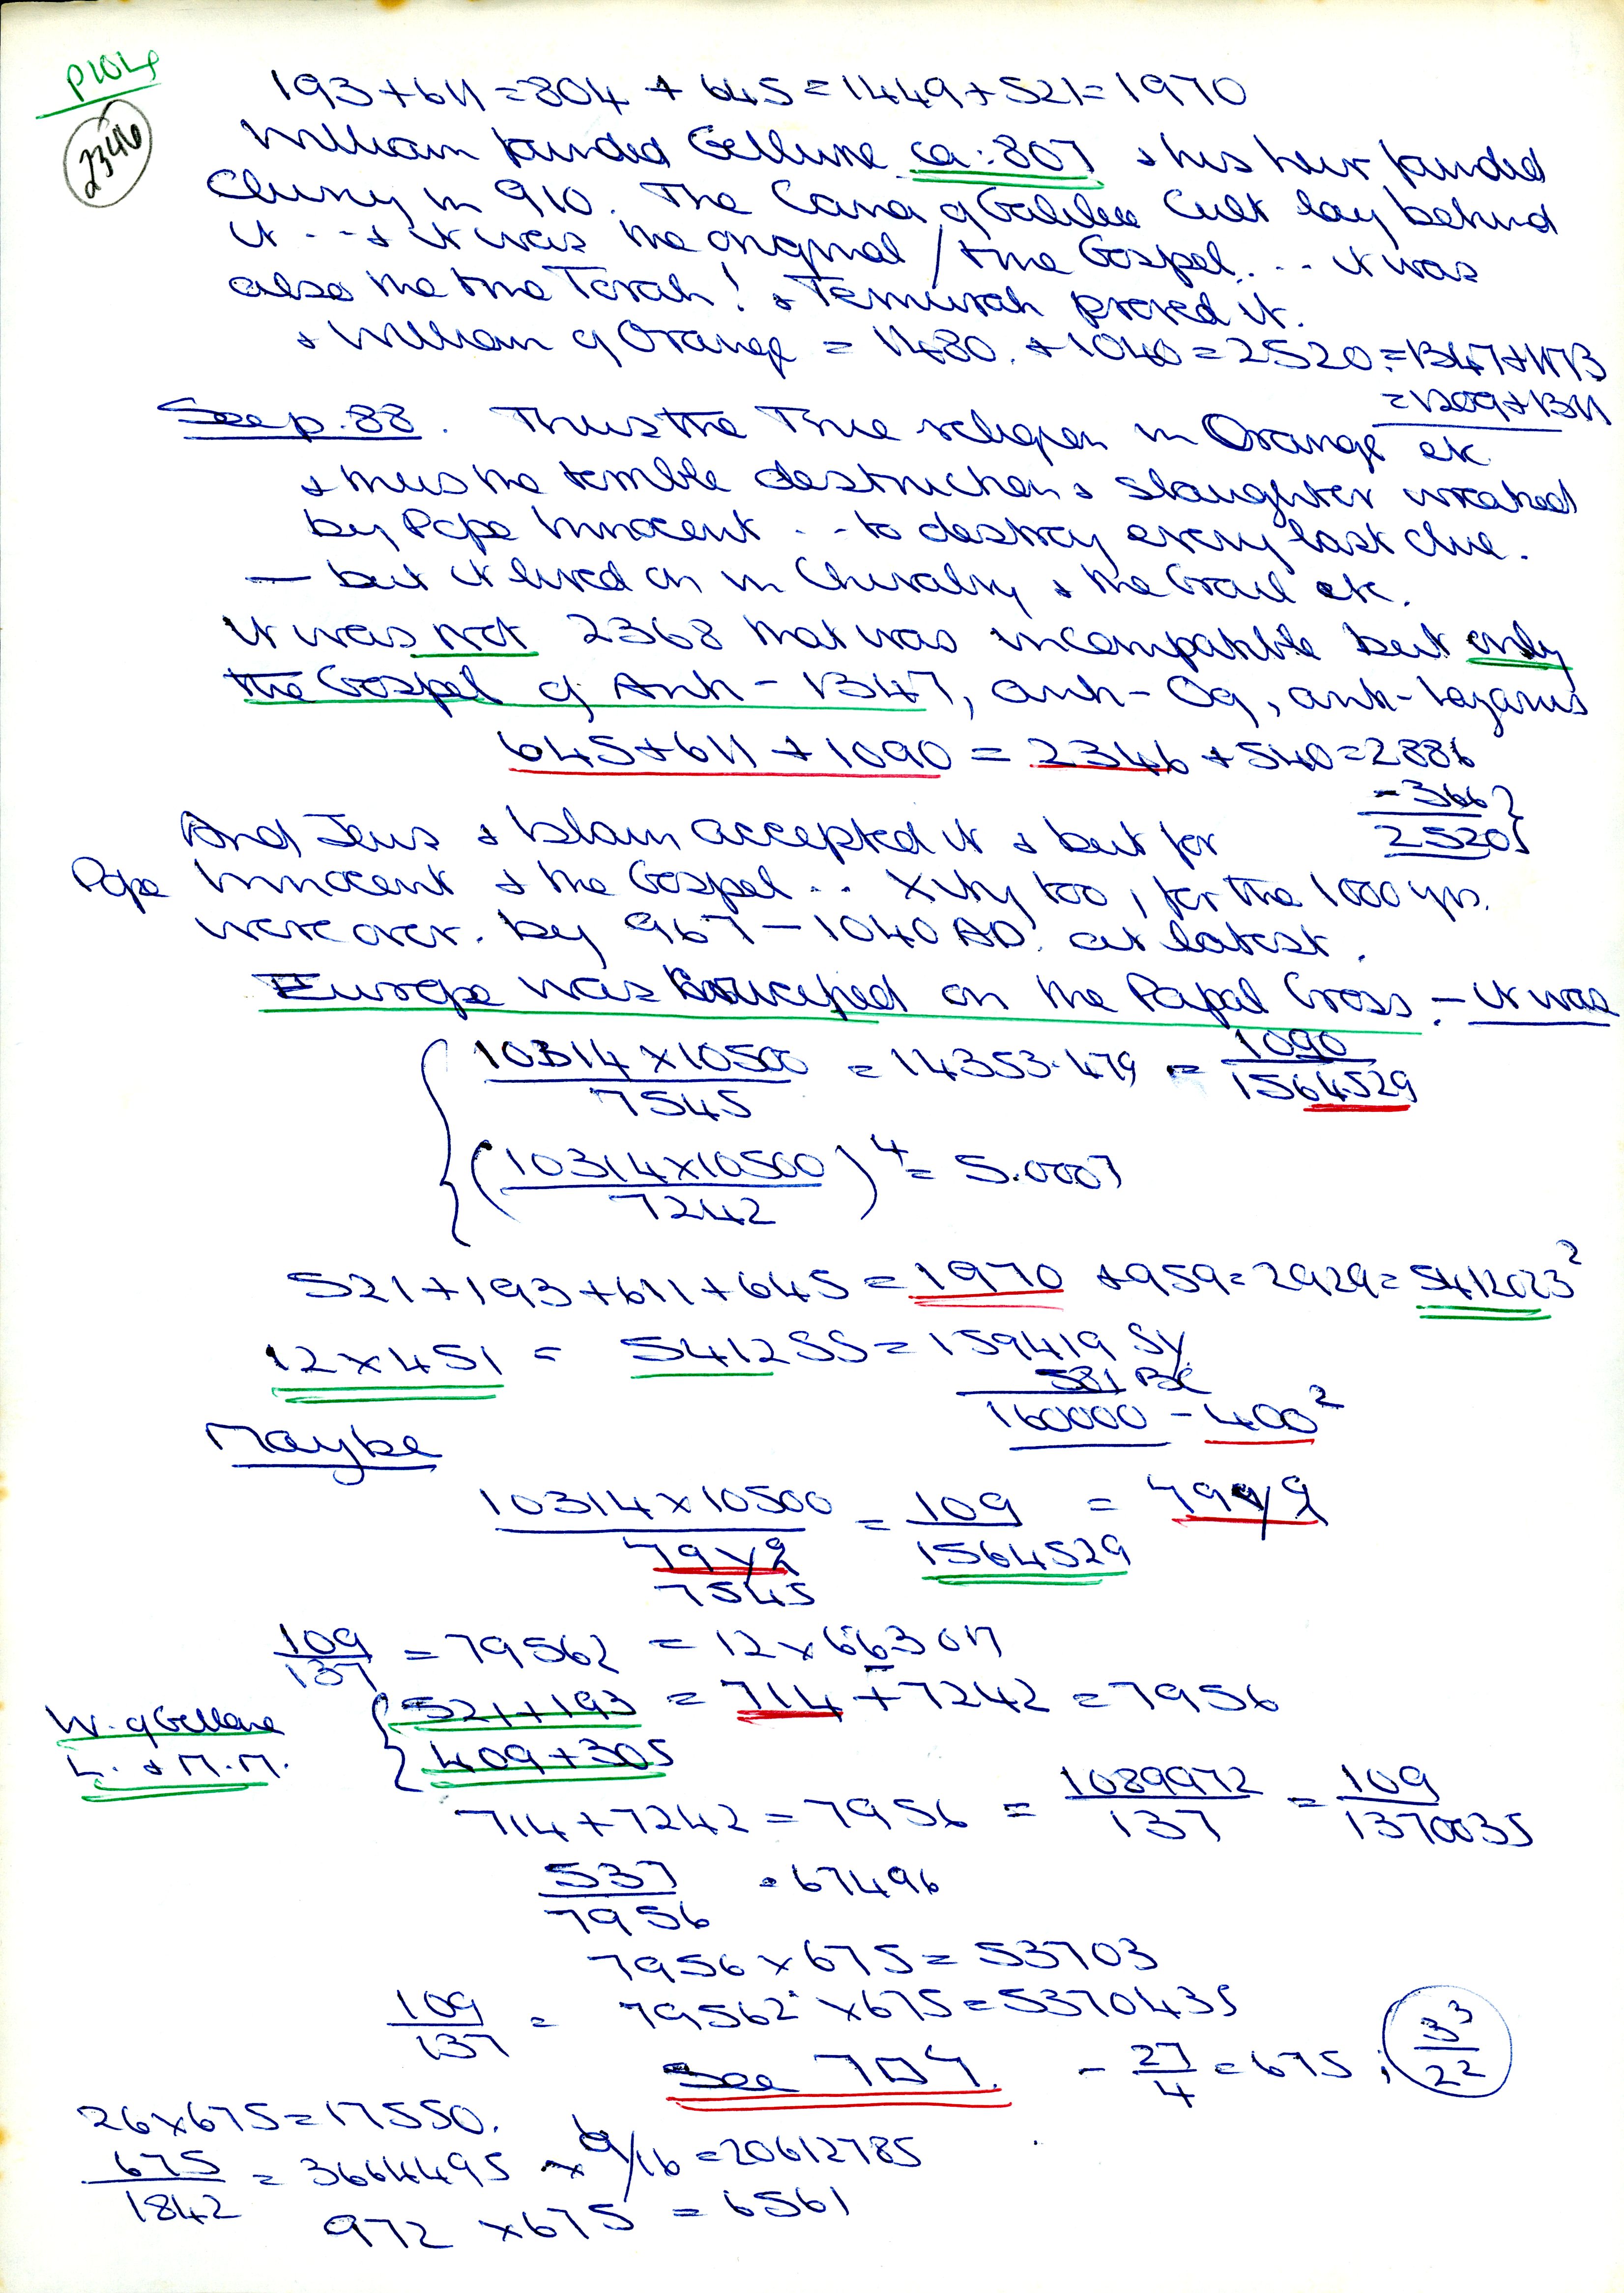 p104
2346
193+611=804 + 645=1449+521=1970
William founded Gellone ca:807 & his heir founded
Cluny in 910. The Cana of Galilee Cult lay behind
it ... & it was the original / true Gospel ... it was
also the true Torah! & Temurah proved it.
& William of Orange = 1480. +1040=2520.=1347+1173
=1209+1311
See p.88. Thus the True religion in Orange etc
& thus the terrible destruction & slaughter wreaked
by Pope Innocent ... to destroy every last clue.
— but it lived on in Chivalry & the Grail etc.
It was not 2368 that was incompatible but only
the Gospel of Anti-1347, anti-Og, anti-Lazarus
645+611+1090 = 2346 +540=2886
-366
2520
And Jews & Islam accepted it & but for
Pope Innocent & the Gospel .. Xity too, for the 1000 yrs.
were over. by 967-1040 AD. at latest.
Europe was Crucified on the Papal Cross. - it was
10314×10500 / 7545 = 14353.479 = 1090 / 1564529
(10314×10500 / 7242)⁴ = 5.0007
521+193+611+645=1970 +959=2929=5412023²
12×451 = 541255=159419 Sy.
581 BC
160000 - 400²
Maybe
10314×10500 / 79 = 109 / 1564529 =
7545
109/137 = 79562 = 12×663017
W. of Gellone 521+193 = 714+7242=7956
L. & M.M. 409+305
714+7242=7956 = 1089972/137 = 109/1370035
537/7956 .67496
7956×675=53703
109/137 = 79562×675=5370435
See 7107. - 27/4=675; 3³/2²
26×675=17550.
675/1842 = 3664495 × 9/16 =20612785
972 ×675 = 6561